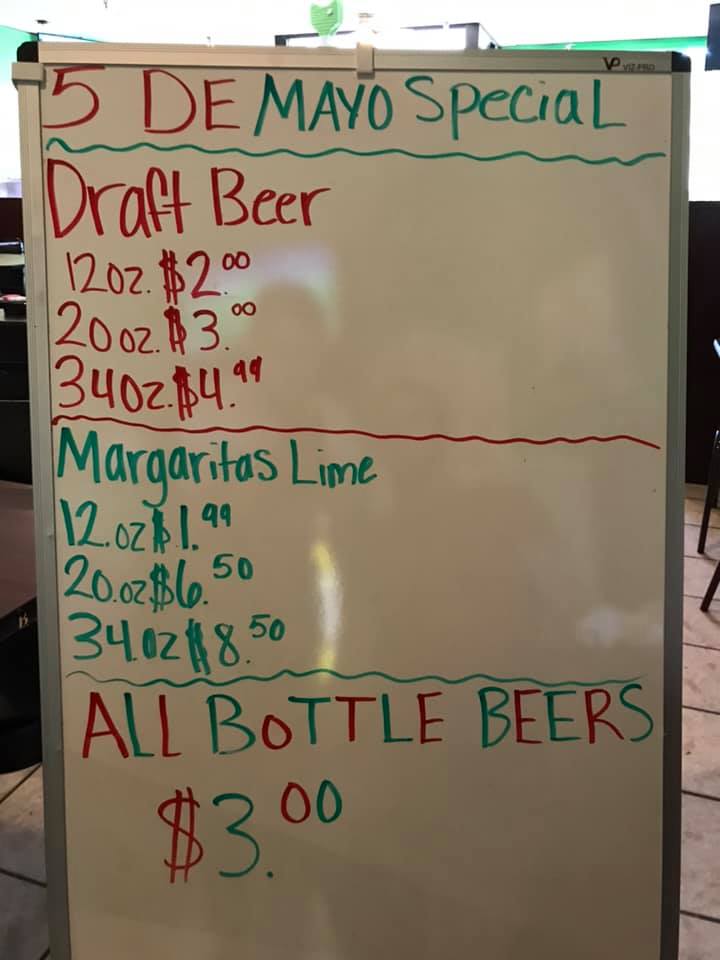 VP VIZ-PRO
5 DE MAYO Special
Draft Beer
12oz. $2.00
20oz. $3.00
34oz. $4.99
Margaritas Lime
12.oz $1.99
20.oz $6.50
34.oz $8.50
ALL BOTTLE BEERS
$3.00